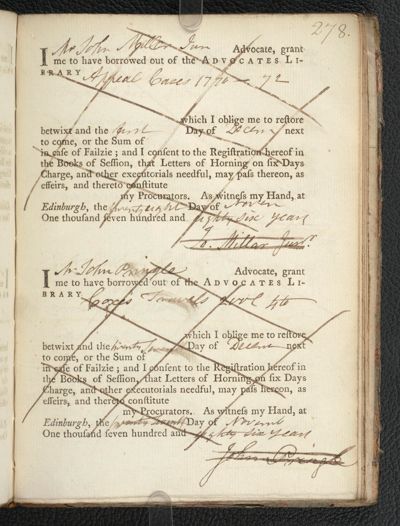 278.
I Mr John Millar Jun Advocate, grant
me to have borrowed out of the ADVOCATES LI-
BRARY Appeal Cases 1770 72
which I oblige me to reſtore
betwixt and the first Day of Decemr next
to come, or the Sum of
in caſe of Failzie ; and I conſent to the Regiſtration hereof in
the Books of Seſſion, that Letters of Horning on ſix Days
Charge, and other executorials needful, may paſs thereon, as
effeirs, and thereto conſtitute
my Procurators. As witneſs my Hand, at
Edinburgh, the Day of Novem
One thouſand ſeven hundred and eighty six years
Jo. Millar Junr.
I Mr John Pringle Advocate, grant
me to have borrowed out of the ADVOCATES LI-
BRARY Coxes Travels 4to
which I oblige me to reſtore
betwixt and the twenty Day of Decemr next
to come, or the Sum of
in caſe of Failzie ; and I conſent to the Regiſtration hereof in
the Books of Seſſion, that Letters of Horning on ſix Days
Charge, and other executorials needful, may paſs hereon, as
effeirs, and thereto conſtitute
my Procurators. As witneſs my Hand, at
Edinburgh, the Day of Novemr
One thouſand ſeven hundred and eighty six years
John Pringle